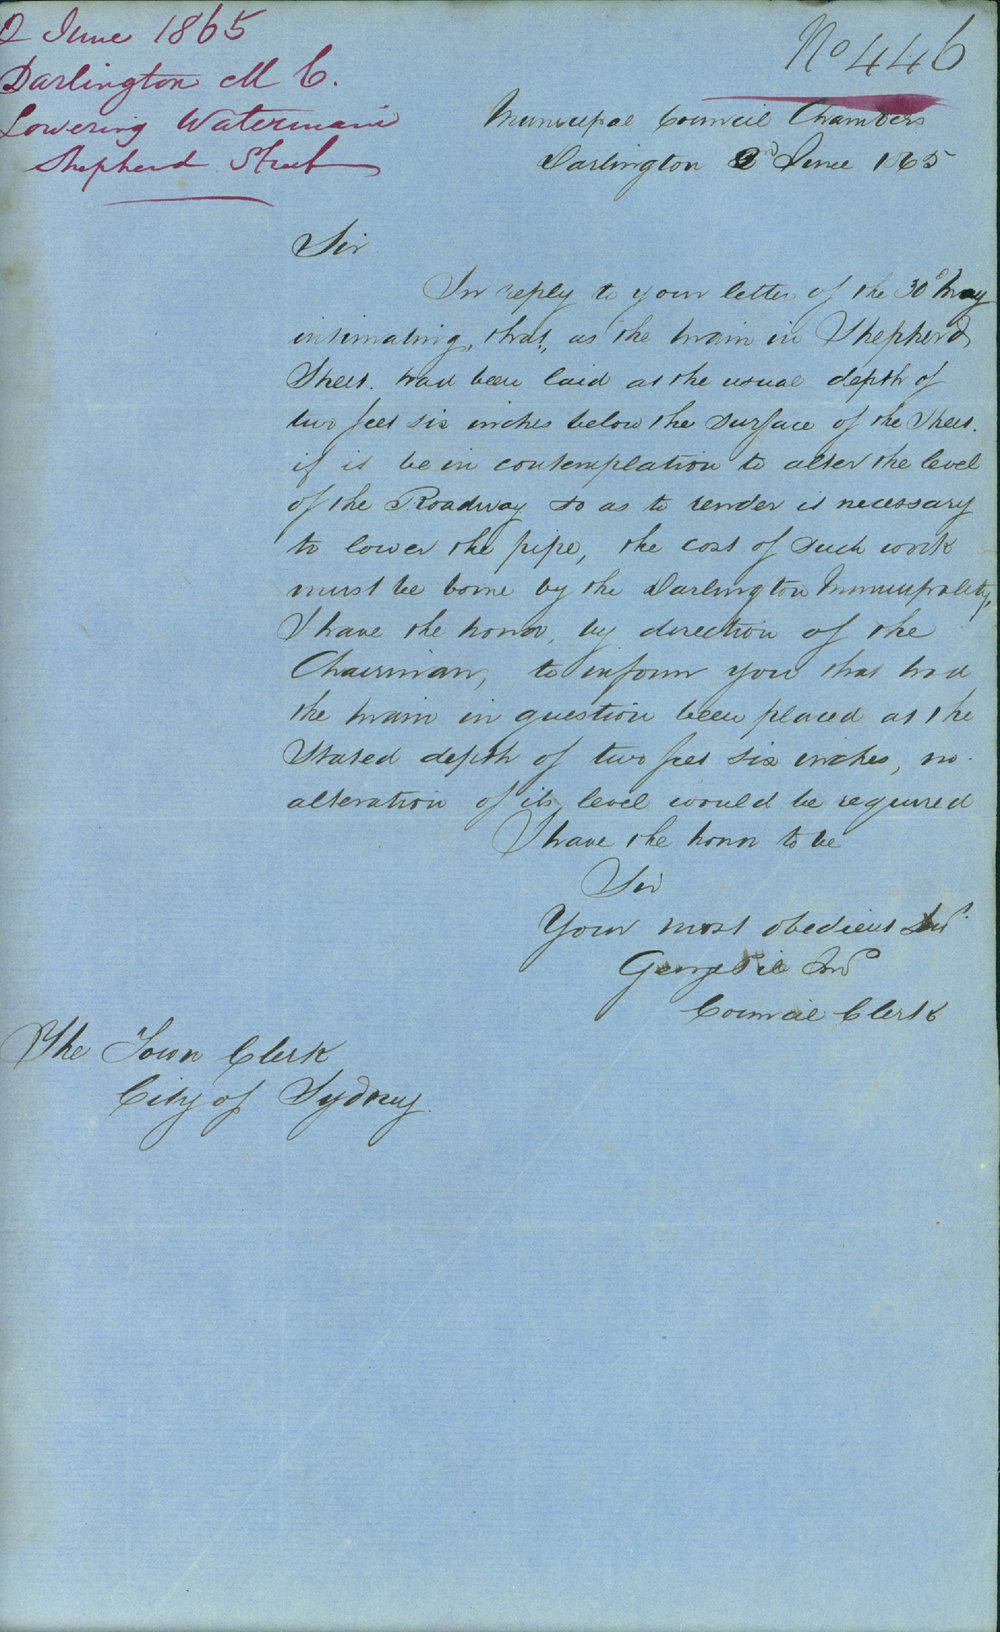 2 June 1865
Darlington M C.
Lowering Watermain
Shepherd Street
No 446
Municipal Council Chambers
Darlington 2nd June 1865
Sir
In reply to your letter of the 30th May
intimating, that, as the main in Shepherd
Street. had been laid at the usual depth of
two feet six inches below the surface of the Street.
if it be in contemplation to alter the level
of the Roadway so as to render it necessary
to lower the pipe, the cost of such work
must be borne by the Darlington Municipality,
I have the honor, by direction of the
Chairman, to inform you that had
the main in question been placed at the
Stated depth of two feet six inches, no
alteration of its level would be required
I have the honor to be
Sir
Your most obedient Servt
George
Council Clerk
The Town Clerk
City of Sydney.